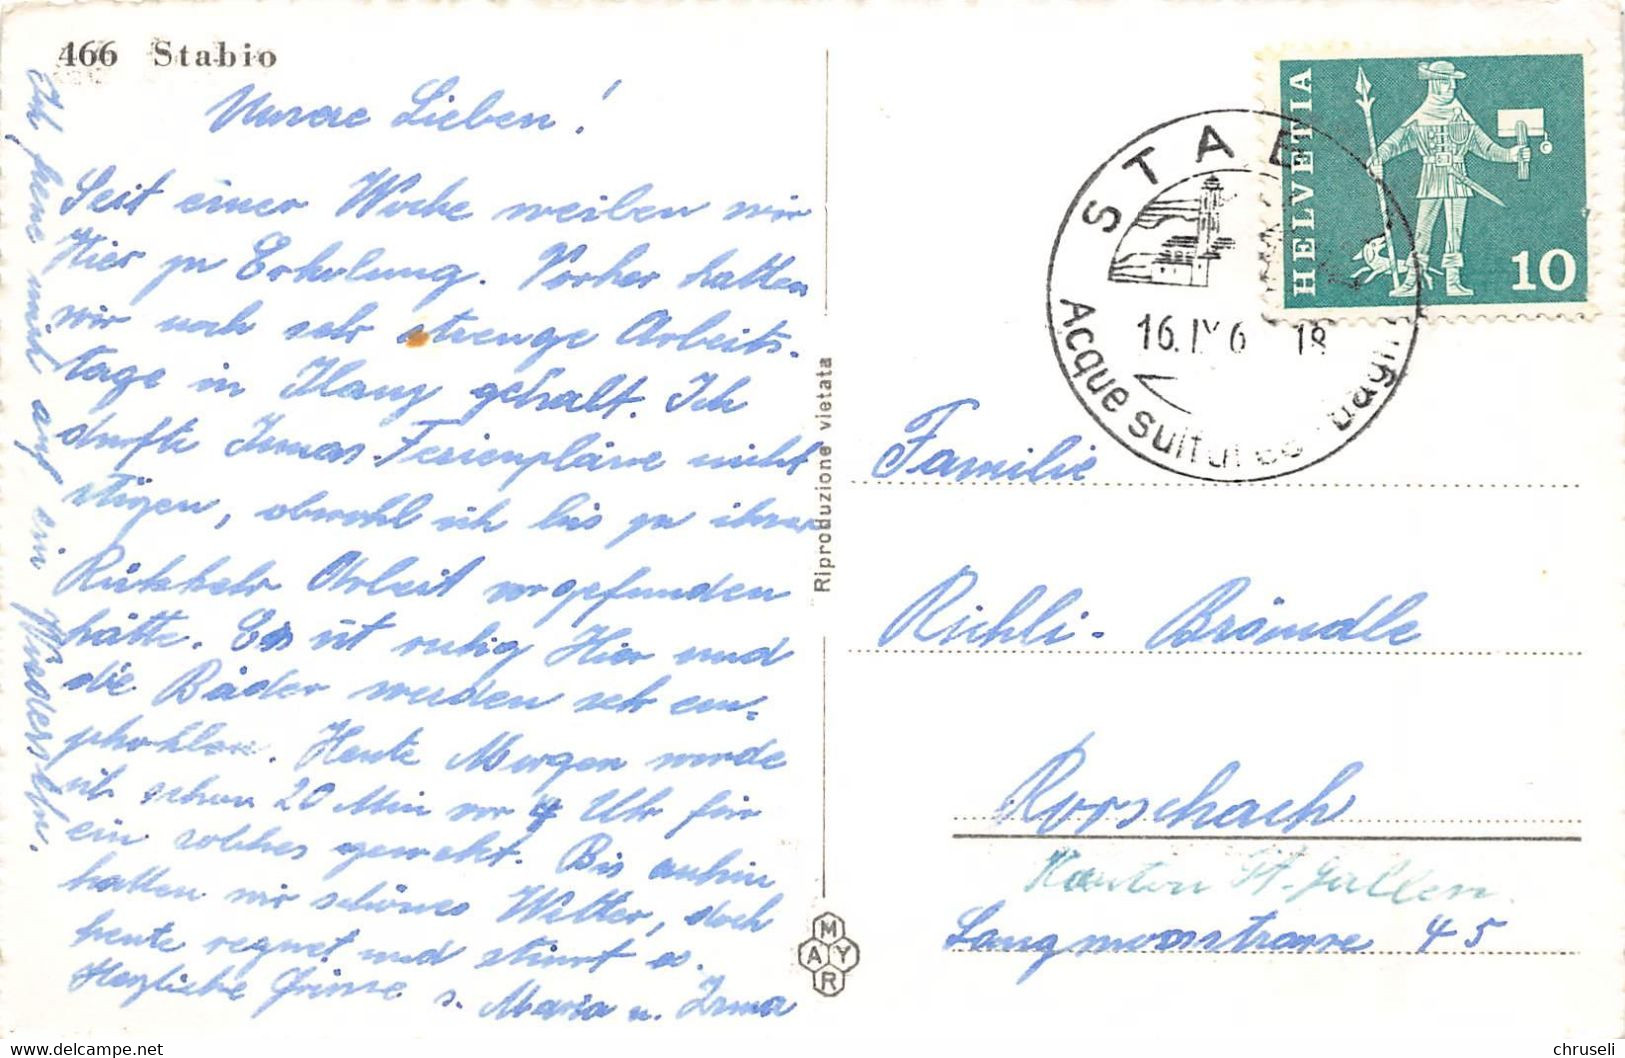 466 Stabio
Unsere Lieben!
Seit einer Woche weilen wir
Hier zu Erholung. Vorher hatten
wir noch sehr strenge Arbeits-
tage in Ilanz gehabt. Ich
durfte Irmas Ferienpläne nicht
stören, obwohl ich bis zu ihrer
Rückkehr Arbeit vorgefunden
hätte. Es ist ruhig Hier und
die Bäder werden sehr em-
pfohlen. Heute Morgen wurde
ich schon 20 Min vor 4 Uhr für
ein solches geweckt. Bis anhin
hatten wir schönes Wetter, doch
heute regnet und stürmt es.
Herzliche Grüsse s. Maria u. Irma
Ich freue mich auf ein Wiedersehn.
Riproduzione vietata
MAYR
STAB
Acque sulfu
16. IX 6 18
HELVETIA
10
Familie
Richli - Brändle
Rorschach
Kanton St. Gallen
Langmoosstrasse 45
delcampe.net
chruseli